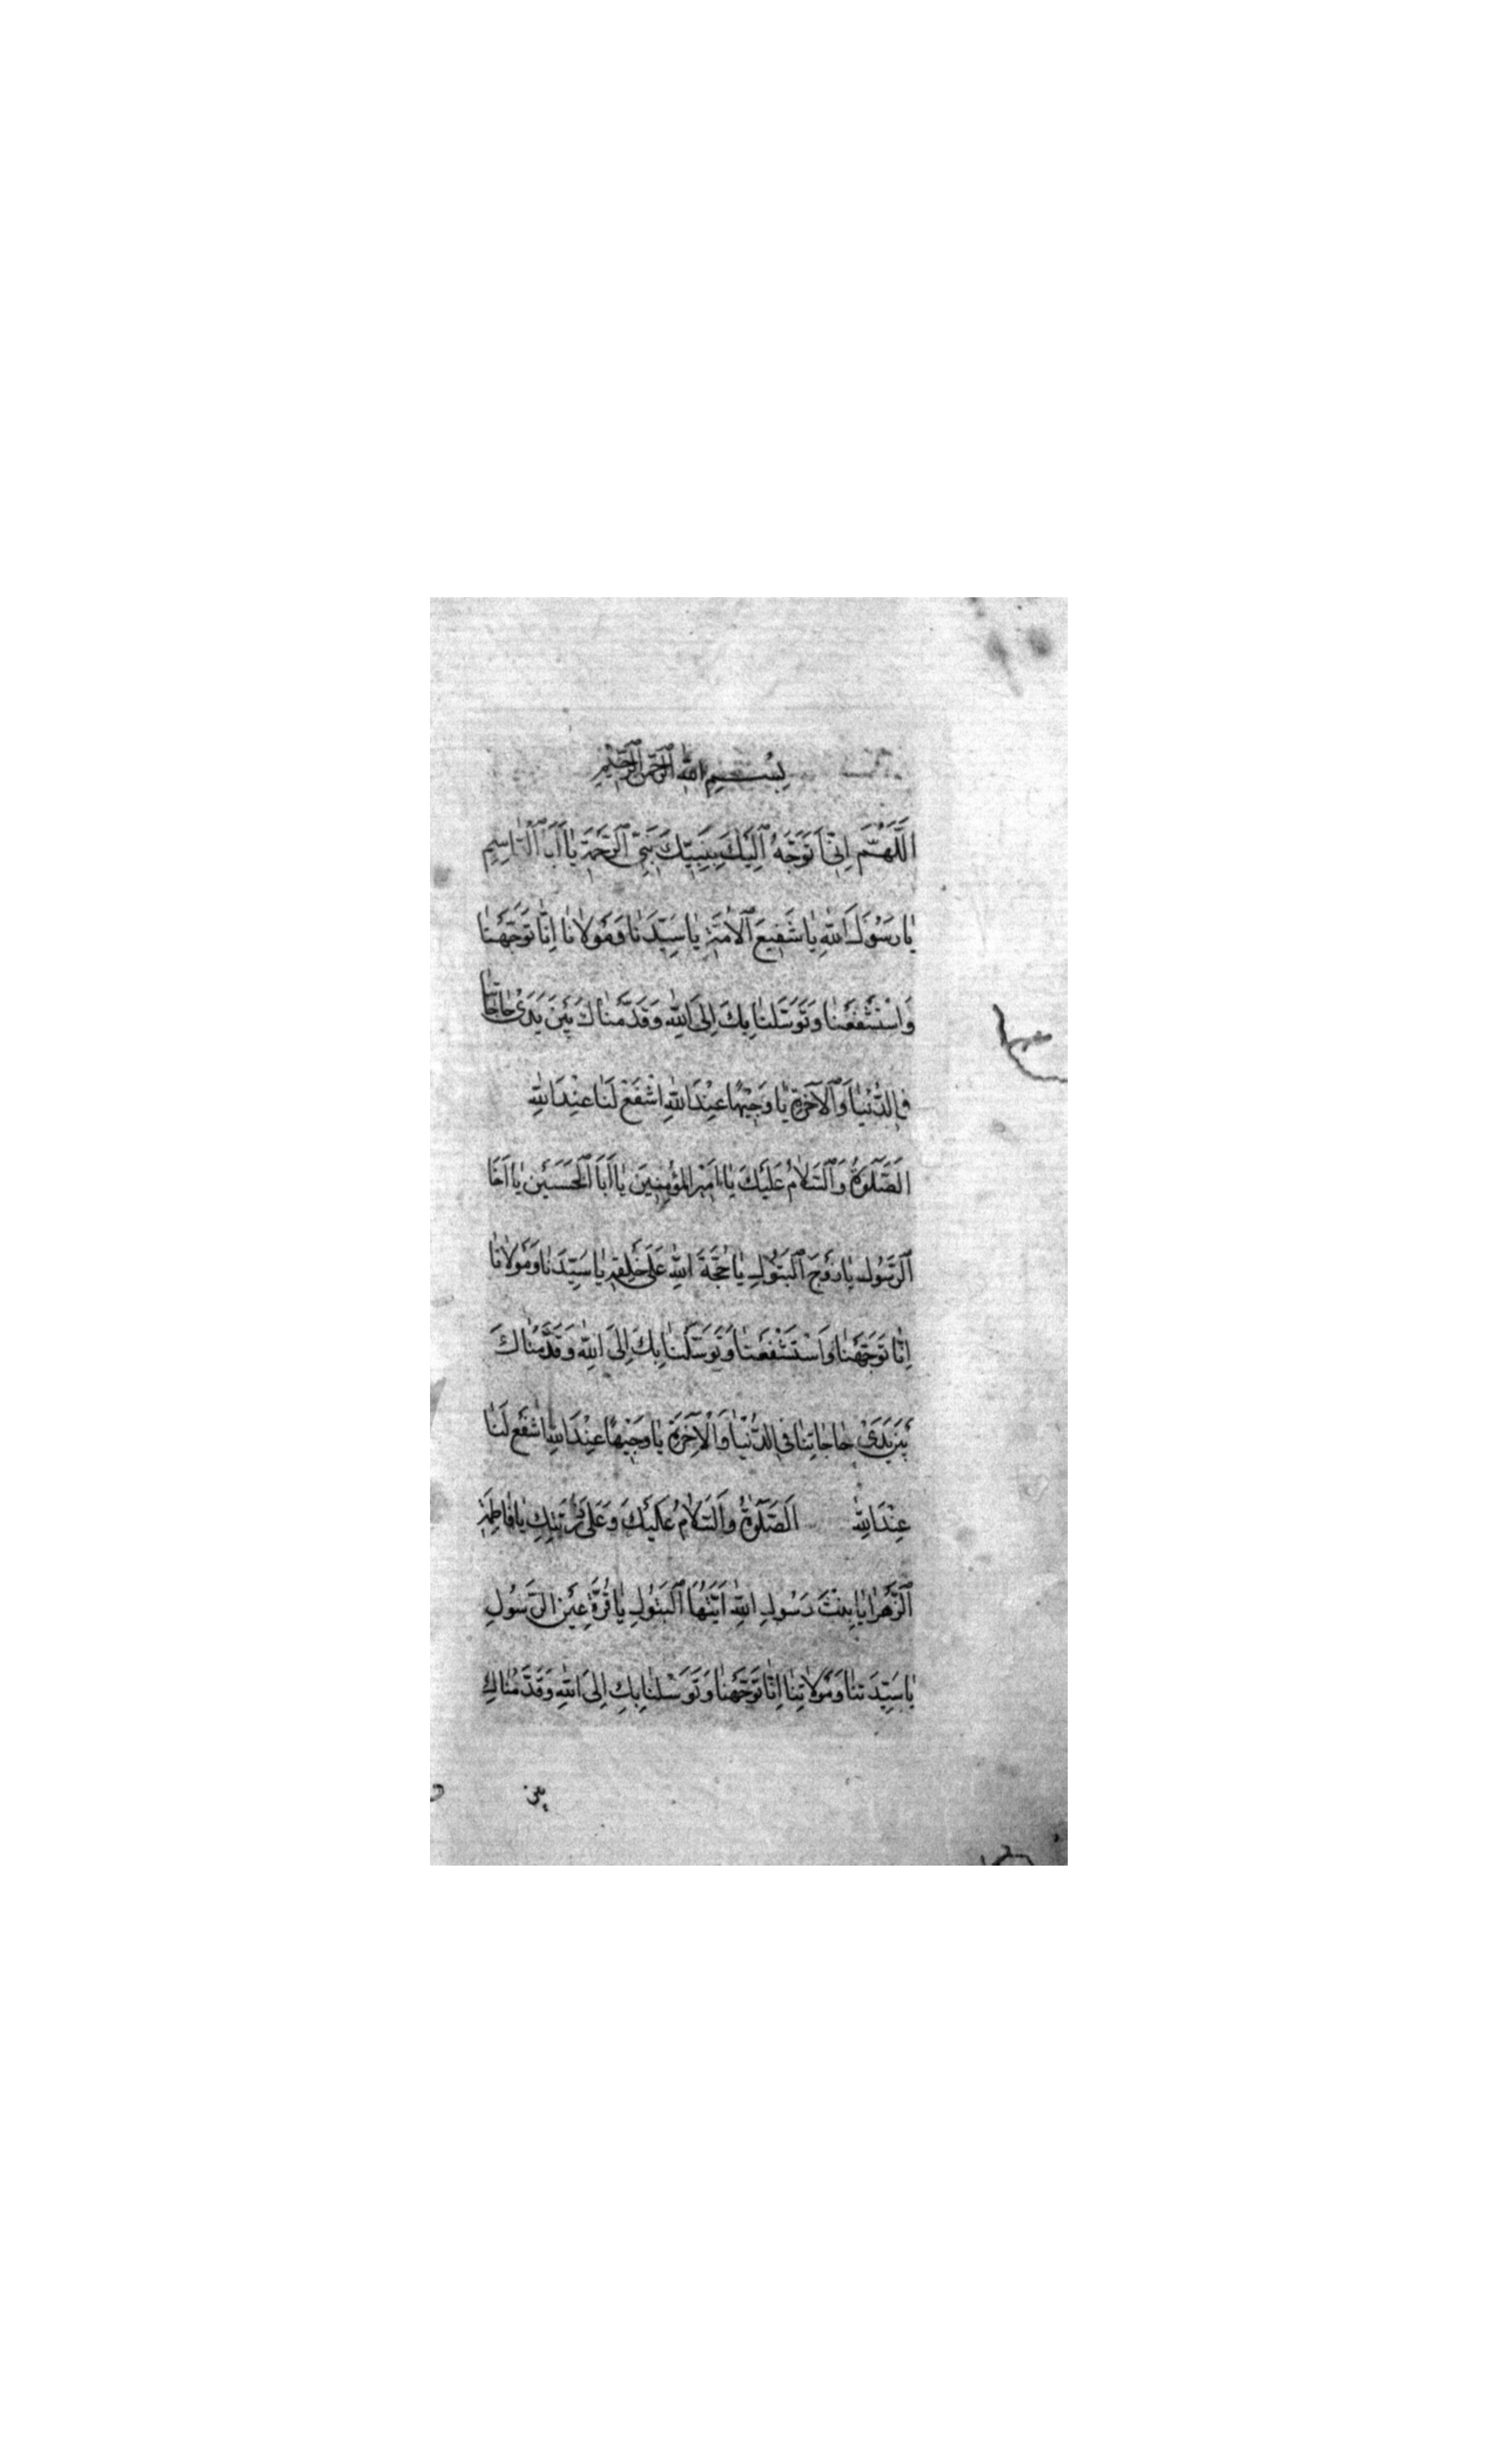 بِسْمِ اللهِ الرَّحْمٰنِ الرَّحِيْمِ
اَللّٰهُمَّ اِنّىٖ اَتَوَجَّهُ اِلَيْكَ بِنَبِيِّكَ نَبِىِّ الرَّحْمَةِ يٰا اَبَا الْقٰاسِمِ
يٰا رَسُوْلَ اللهِ يٰا شَفِيعَ الْاُمَّةِ يٰا سَيِّدَنٰا وَمَوْلٰانٰا اِنّٰا تَوَجَّهْنٰا
وَاسْتَشْفَعْنٰا وَتَوَسَّلْنٰا بِكَ اِلَى اللهِ وَقَدَّمْنٰاكَ بَيْنَ يَدَىْ حٰاجٰاتِنٰا
فِى الدُّنْيٰا وَالْآخِرَةِ يٰا وَجِيْهًا عِنْدَ اللهِ اشْفَعْ لَنٰا عِنْدَ اللهِ
اَلصَّلٰوةُ وَالسَّلٰامُ عَلَيْكَ يٰا اَمِيْرَ الْمُؤْمِنِيْنَ يٰا اَبَا الْحَسَنَيْنِ يٰا اَخَا
الرَّسُوْلِ يٰا زَوْجَ الْبَتُوْلِ يٰا حُجَّةَ اللهِ عَلٰى خَلْقِهٖ يٰا سَيِّدَنٰا وَمَوْلٰانٰا
اِنّٰا تَوَجَّهْنٰا وَاسْتَشْفَعْنٰا وَتَوَسَّلْنٰا بِكَ اِلَى اللهِ وَقَدَّمْنٰاكَ
بَيْنَ يَدَىْ حٰاجٰاتِنٰا فِى الدُّنْيٰا وَالْآخِرَةِ يٰا وَجِيْهًا عِنْدَ اللهِ اشْفَعْ لَنٰا
عِنْدَ اللهِ اَلصَّلٰوةُ وَالسَّلٰامُ عَلَيْكَ وَعَلٰى ذُرِّيَّتِكِ يٰا فٰاطِمَةُ
الزَّهْرٰا يٰا بِنْتَ رَسُوْلِ اللهِ اَيَّتُهَا الْبَتُوْلِ يٰا قُرَّةَ عَيْنِ الرَّسُوْلِ
يٰا سَيِّدَتَنٰا وَمَوْلٰاتَنٰا اِنّٰا تَوَجَّهْنٰا وَتَوَسَّلْنٰا بِكِ اِلَى اللهِ وَقَدَّمْنٰاكِ
بين